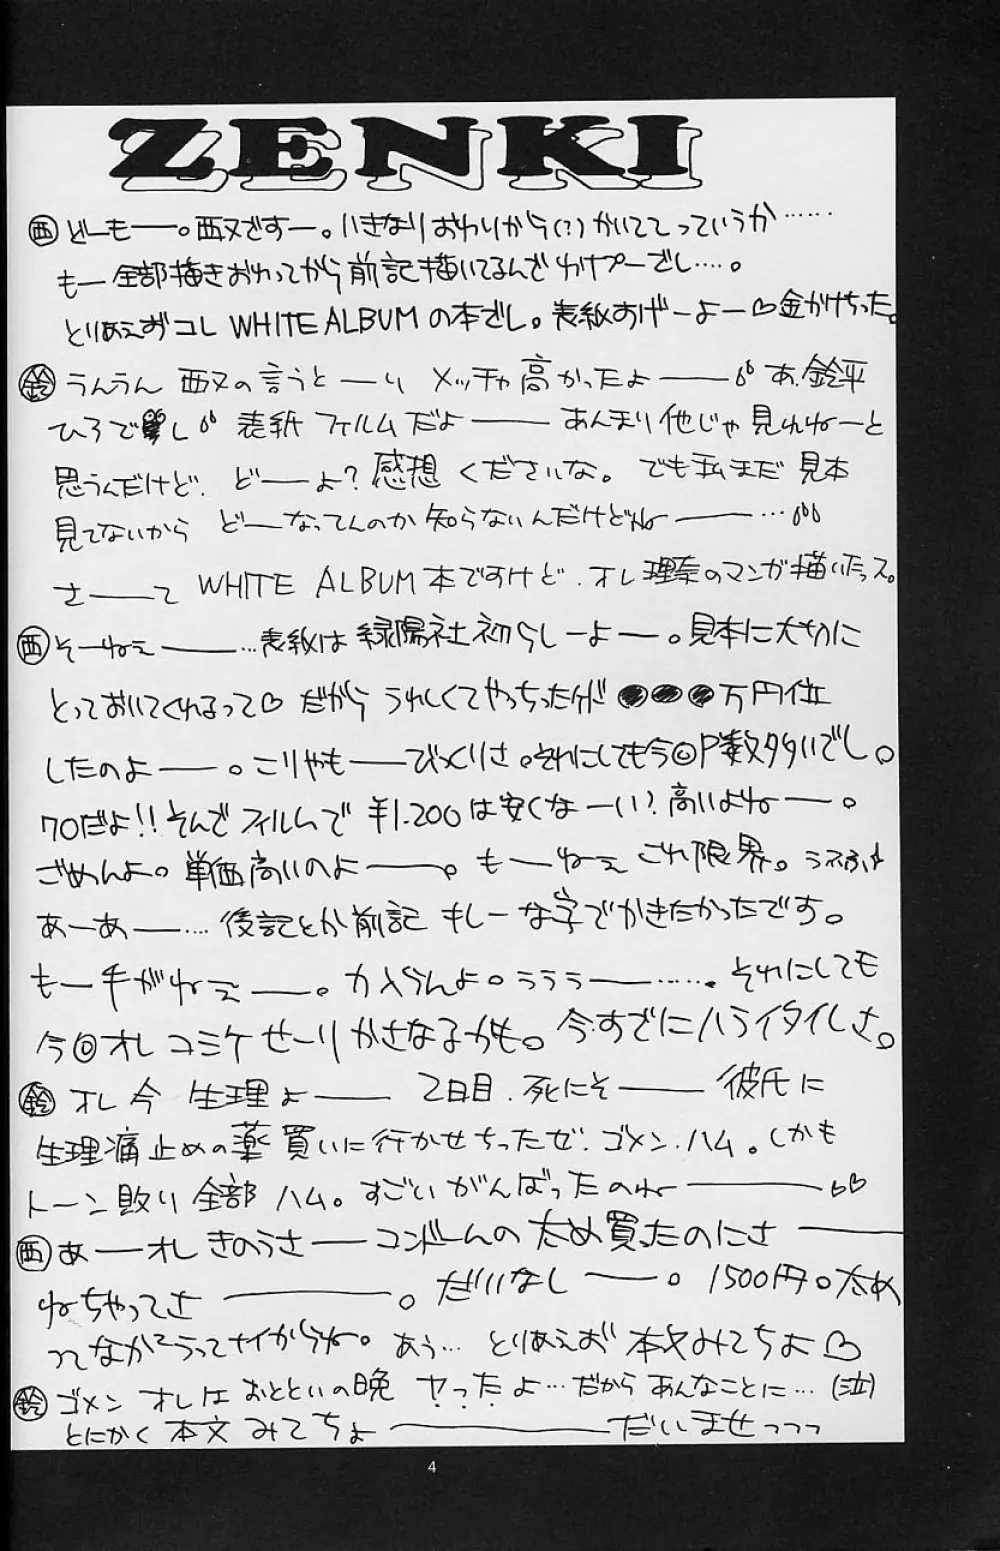 ZENKI
西 どーもー。西又ですー。いきなりおわりから(?)かいててっていうか……
もー全部描きおわってから前記描いてるんでわけプーでし…。
とりあえずコレ WHITE ALBUM の本でし。表紙すげーよー♡金かけちった。
鈴 うんうん 西又の言うとーり メッチャ高かったよー あ、鈴平
ひろでし 表紙フィルムだよー あんまり他じゃ見れねーと
思うんだけど、どーよ?感想くださいな。でも私まだ見本
見てないから どーなってんのか知らないんだけどねー…
さーて WHITE ALBUM 本ですけど、オレ理奈のマンガ描いたっス。
西 そーねぇー…表紙は緑陽社初らしーよー。見本に大切に
とっておいてくれるって♡ だから うれしくてやっちったが ●●●万円位
したのよー。こりゃもーびっくりさ。それにしても今回P数多いでし。
70だよ!!そんでフィルムで ¥1.200は安くなーい?高いよねー。
ごめんよ。単価高いのよー。もーねぇ これ限界。
あーあー…. 後記とか前記 キレーな字でかきたかったです。
もー手がねぇー。力入らんよ。うううー……. それにしても
今回オレ コミケ せーりかさなるかも。今すでにハライタイしさ。
鈴 オレ今 生理よー 2日目、死にそー 彼氏に
生理痛止めの薬買いに行かせちったぜ、ゴメン、ハム。しかも
トーン貼り全部ハム。すごいがんばったのねー
西 あーオレ きのうさー コンドームの太め買ったのにさー
ねちゃってさー。だいなしー。1500円。太め
ってなかなかうってナイからね。あう… とりあえず 本文みてちょ♡
鈴 ゴメン オレは おとといの晩 ヤったよ…だから あんなことに…(泣)
とにかく 本文 みてちょー だいませっっっ
4